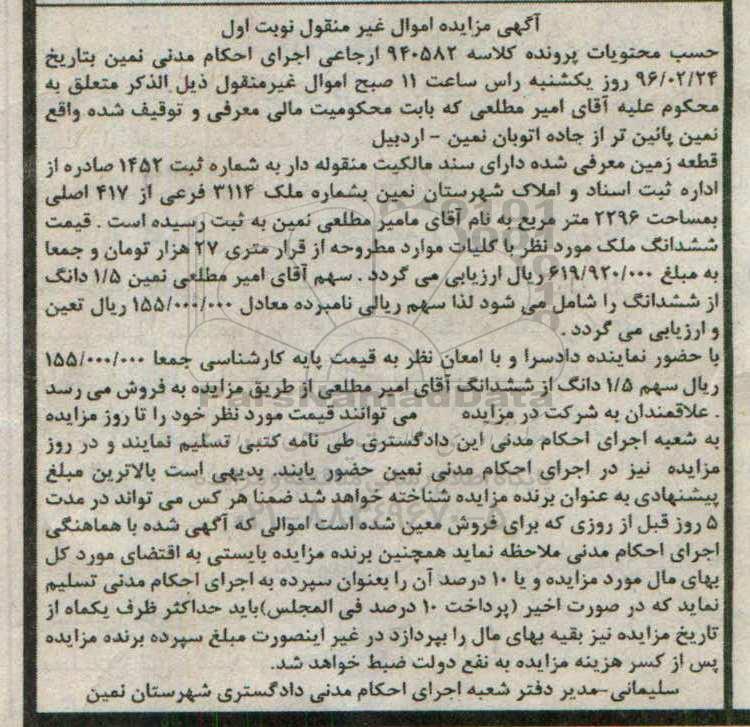 آگهی مزایده اموال غیر منقول نوبت اول
حسب محتویات پرونده کلاسه ۹۴۰۵۸۲ ارجاعی اجرای احکام مدنی نمین بتاریخ
۹۶/۰۲/۲۴ روز یکشنبه راس ساعت ۱۱ صبح اموال غیرمنقول ذیل الذکر متعلق به
محکوم علیه آقای امیر مطلعی که بابت محکومیت مالی معرفی و توقیف شده واقع
نمین پائین تر از جاده اتوبان نمین - اردبیل
قطعه زمین معرفی شده دارای سند مالکیت منقوله دار به شماره ثبت ۱۴۵۲ صادره از
اداره ثبت اسناد و املاک شهرستان نمین بشماره ملک ۳۱۱۴ فرعی از ۴۱۷ اصلی
بمساحت ۲۲۹۶ متر مربع به نام آقای مامیر مطلعی نمین به ثبت رسیده است . قیمت
ششدانگ ملک مورد نظر با کلیات موارد مطروحه از قرار متری ۲۷ هزار تومان و جمعا
به مبلغ ۶۱۹/۹۲۰/۰۰۰ ریال ارزیابی می گردد . سهم آقای امیر مطلعی نمین ۱/۵ دانگ
از ششدانگ را شامل می شود لذا سهم ریالی نامبرده معادل ۱۵۵/۰۰۰/۰۰۰ ریال تعین
و ارزیابی می گردد .
با حضور نماینده دادسرا و با امعان نظر به قیمت پایه کارشناسی جمعا ۱۵۵/۰۰۰/۰۰۰
ریال سهم ۱/۵ دانگ از ششدانگ آقای امیر مطلعی از طریق مزایده به فروش می رسد
. علاقمندان به شرکت در مزایده می توانند قیمت مورد نظر خود را تا روز مزایده
به شعبه اجرای احکام مدنی این دادگستری طی نامه کتبی تسلیم نمایند و در روز
مزایده نیز در اجرای احکام مدنی نمین حضور یابند. بدیهی است بالاترین مبلغ
پیشنهادی به عنوان برنده مزایده شناخته خواهد شد ضمنا هر کس می تواند در مدت
۵ روز قبل از روزی که برای فروش معین شده است اموالی که آگهی شده با هماهنگی
اجرای احکام مدنی ملاحظه نماید همچنین برنده مزایده بایستی به اقتضای مورد کل
بهای مال مورد مزایده و یا ۱۰ درصد آن را بعنوان سپرده به اجرای احکام مدنی تسلیم
نماید که در صورت اخیر (پرداخت ۱۰ درصد فی المجلس)باید حداکثر ظرف یکماه از
تاریخ مزایده نیز بقیه بهای مال را بپردازد در غیر اینصورت مبلغ سپرده برنده مزایده
پس از کسر هزینه مزایده به نفع دولت ضبط خواهد شد.
سلیمانی-مدیر دفتر شعبه اجرای احکام مدنی دادگستری شهرستان نمین
ParsNamadData